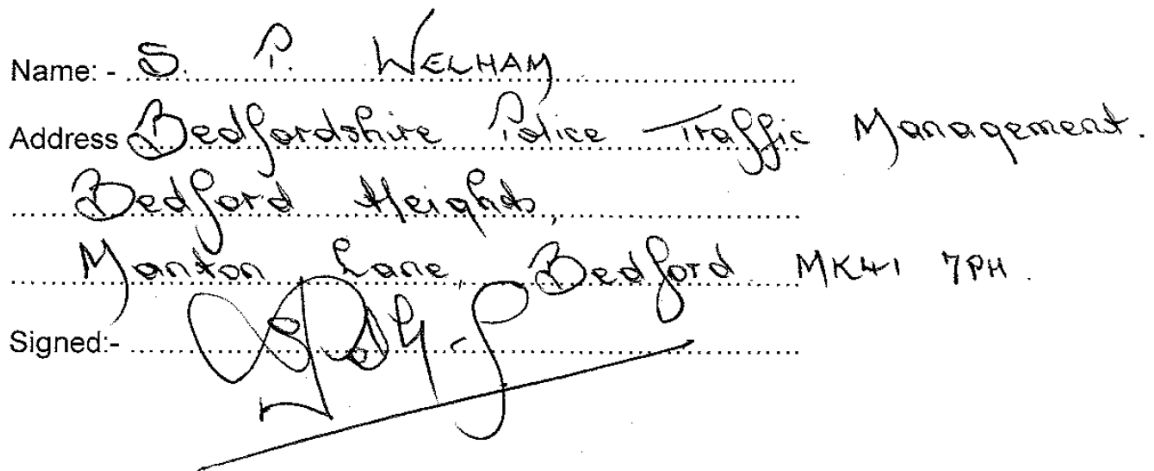 Name: - S. P. WELHAM
Address Bedfordshire Police Traffic Management.
Bedford Heights,
Manton Lane, Bedford MK41 7PH.
Signed:-